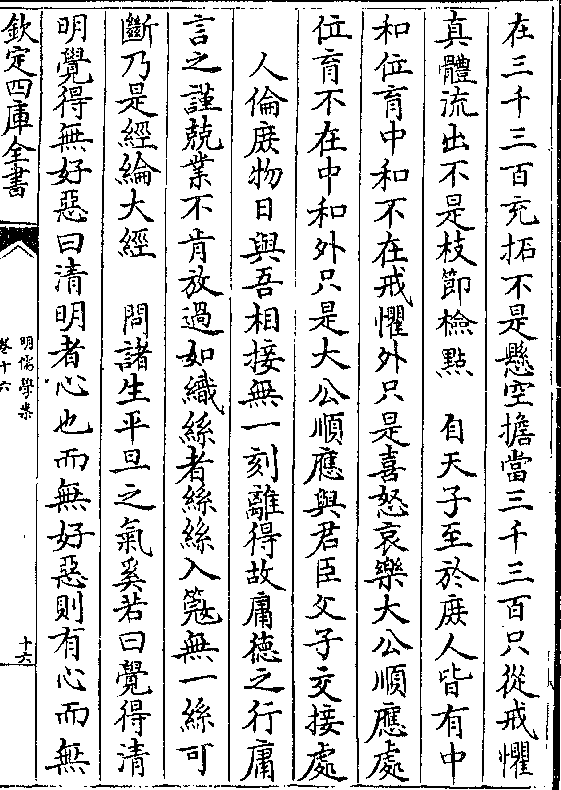 在三千三百充拓不是懸空擔當三千三百只從戒懼
真體流出不是枝節檢點　自天子至於庻人皆有中
和位育中和不在戒懼外只是喜怒哀樂大公順應處
位育不在中和外只是大公順應與君臣父子交接處
人倫庻物日與吾相接無一刻離得故庸德之行庸
言之謹兢業不肯放過如織絲者絲絲入簆無一絲可
斷乃是經綸大經　問諸生平旦之氣奚若曰覺得清
明覺得無好惡曰清明者心也而無好惡則有心而無
欽定四庫全書
明儒學案
卷十六
十六